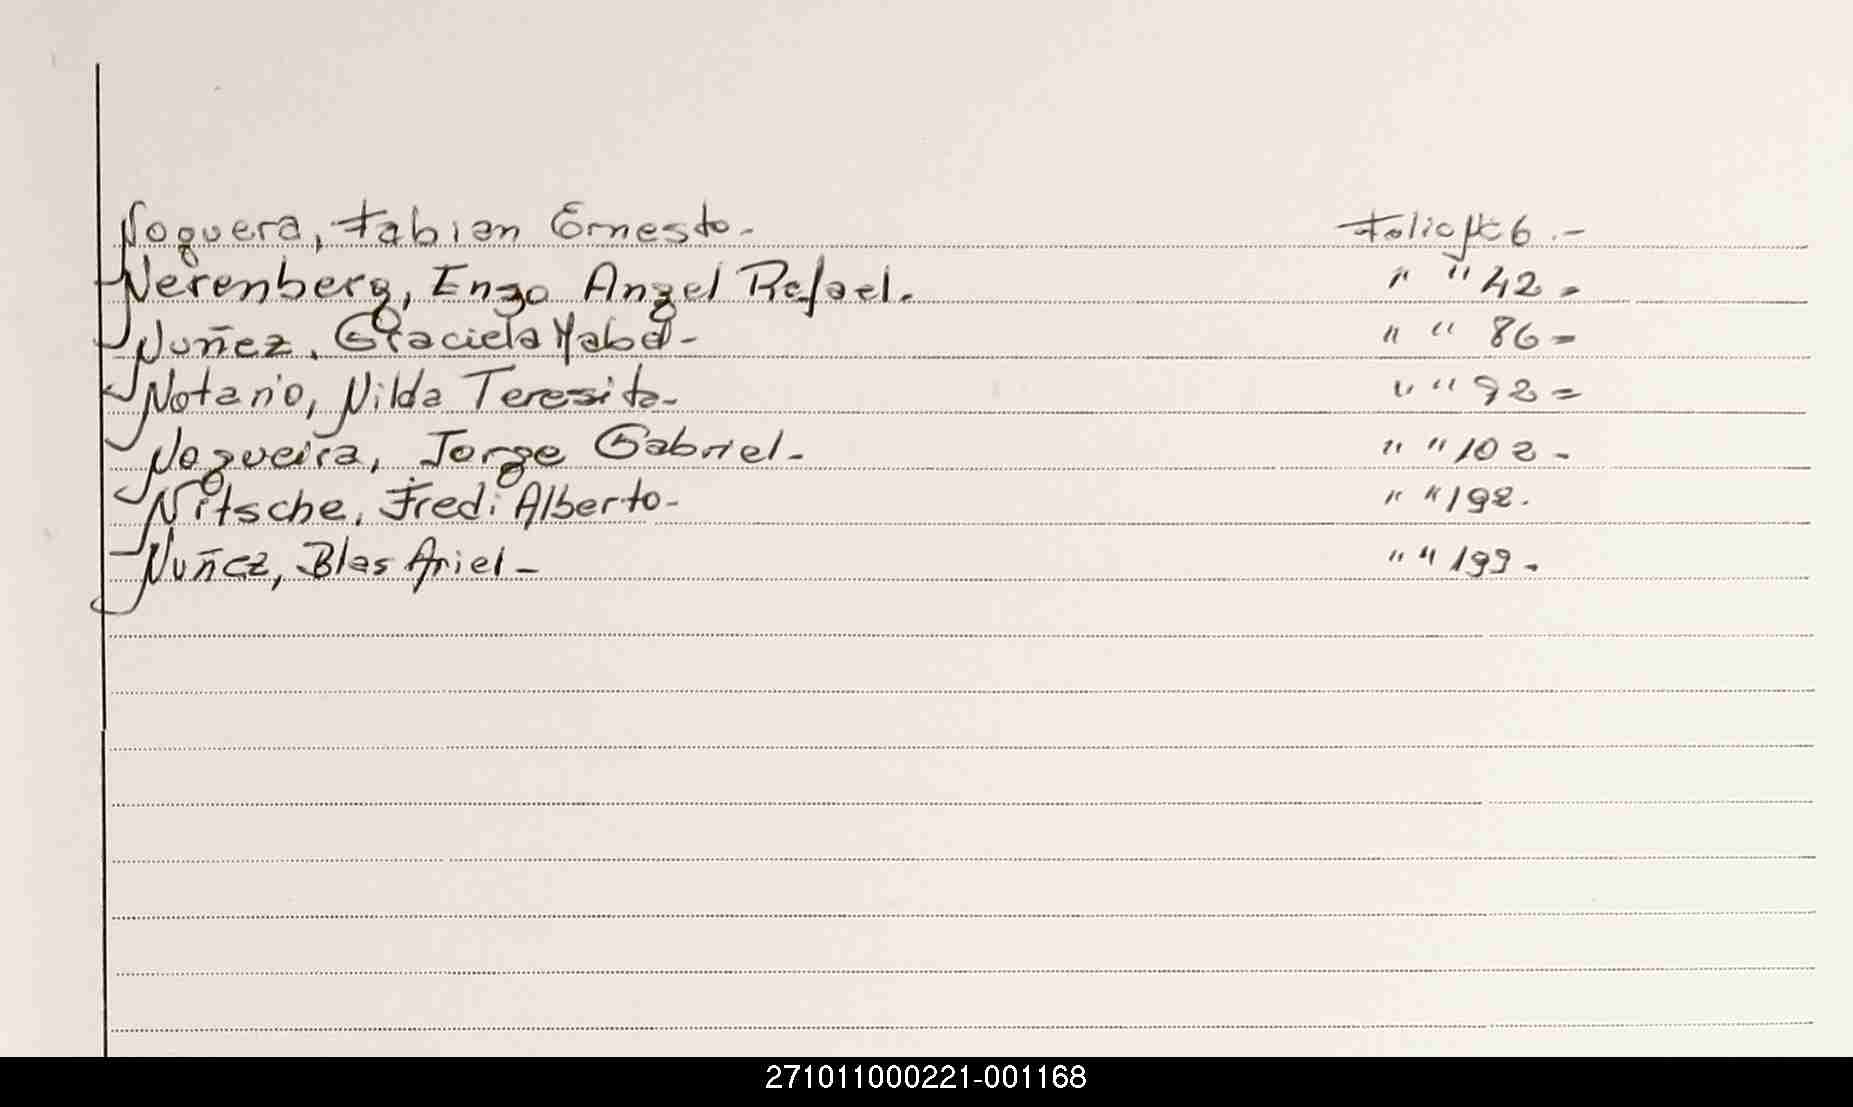 Noguera, Fabian Ernesto.- Folio Nº 6.-
Nerenberg, Enzo Angel Rafael. " " 42-
Nuñez, Graciela Mabel- " " 86-
Notario, Nilda Teresita- " " 92-
Nogueira, Jorge Gabriel- " " 102-
Nitsche, Fredi Alberto- " " 192.
Nuñez, Blas Ariel- " " 199-
271011000221-001168